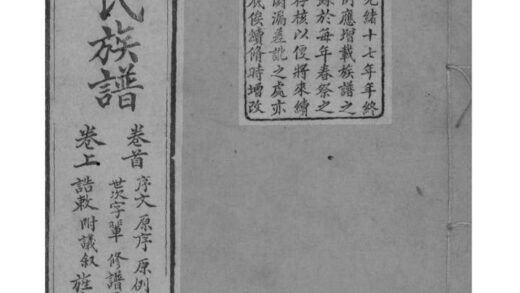 光緒十七年年終
例應增載族譜之
錄於每年春祭之
存核以便將來續
漏差訛之處亦
俟續脩時增改
氏族譜
卷首
序文 原序 原例
世次字單 修譜
卷上
誥敕 附議叙 旌